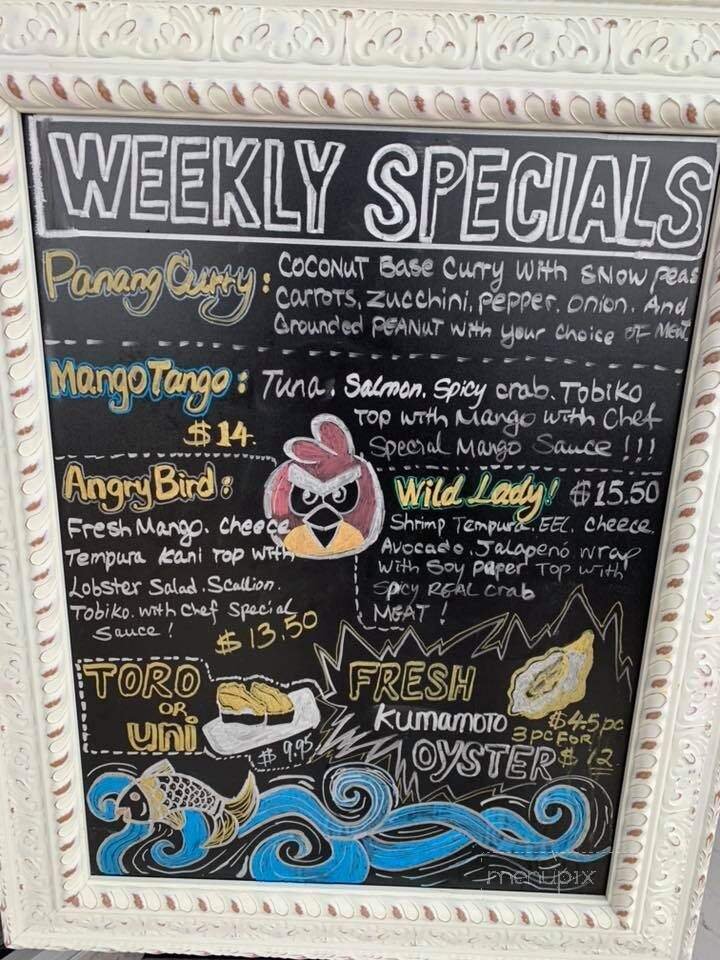 WEEKLY SPECIALS
Panang Curry : COCONUT Base Curry With SNOW peas
Carrots, Zucchini, pepper, onion, And
Grounded PEANUT with your choice OF MEAT
Mango Tango : Tuna, Salmon, Spicy crab, Tobiko
Top with Mango with Chef
$14. Special Mango Sauce !!!
Angry Bird :
Fresh Mango, Cheece
Tempura Kani Top With
Lobster Salad, Scallion,
Tobiko, with Chef Special
Sauce !
$13.50
Wild Lady! $15.50
Shrimp Tempura, EEL, Cheece,
Avocado, Jalapenó wrap
with Soy Paper Top with
Spicy REAL crab
MEAT !
TORO
OR
uni
$9.95
FRESH
Kumamoto $4.5 pc
3 pc FOR
OYSTER $12
menupix